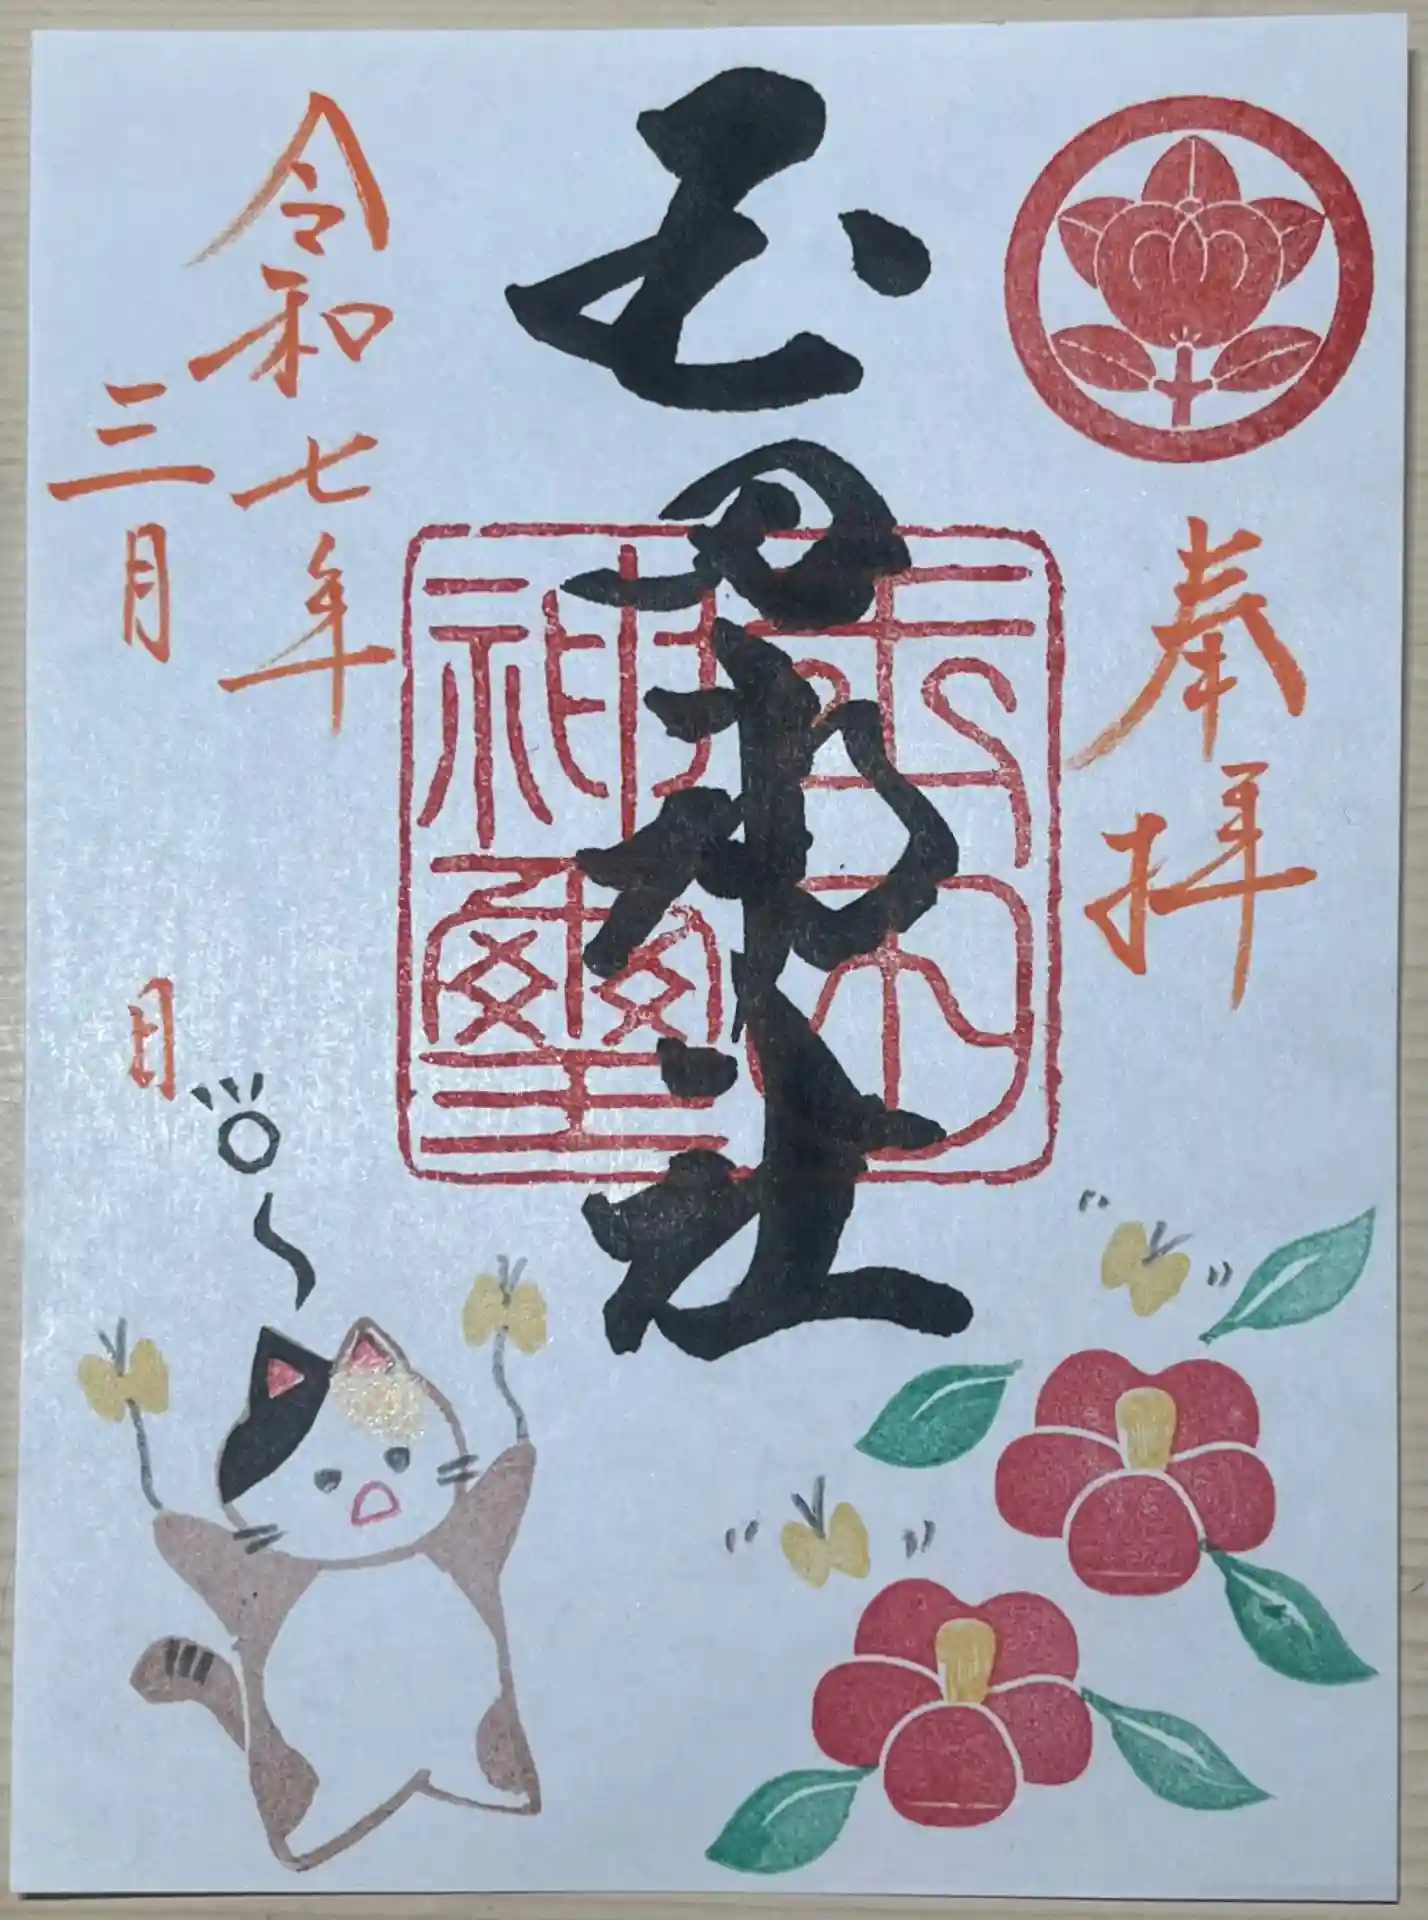 奉拝
玉田神社
神璽
令和七年
三月 日